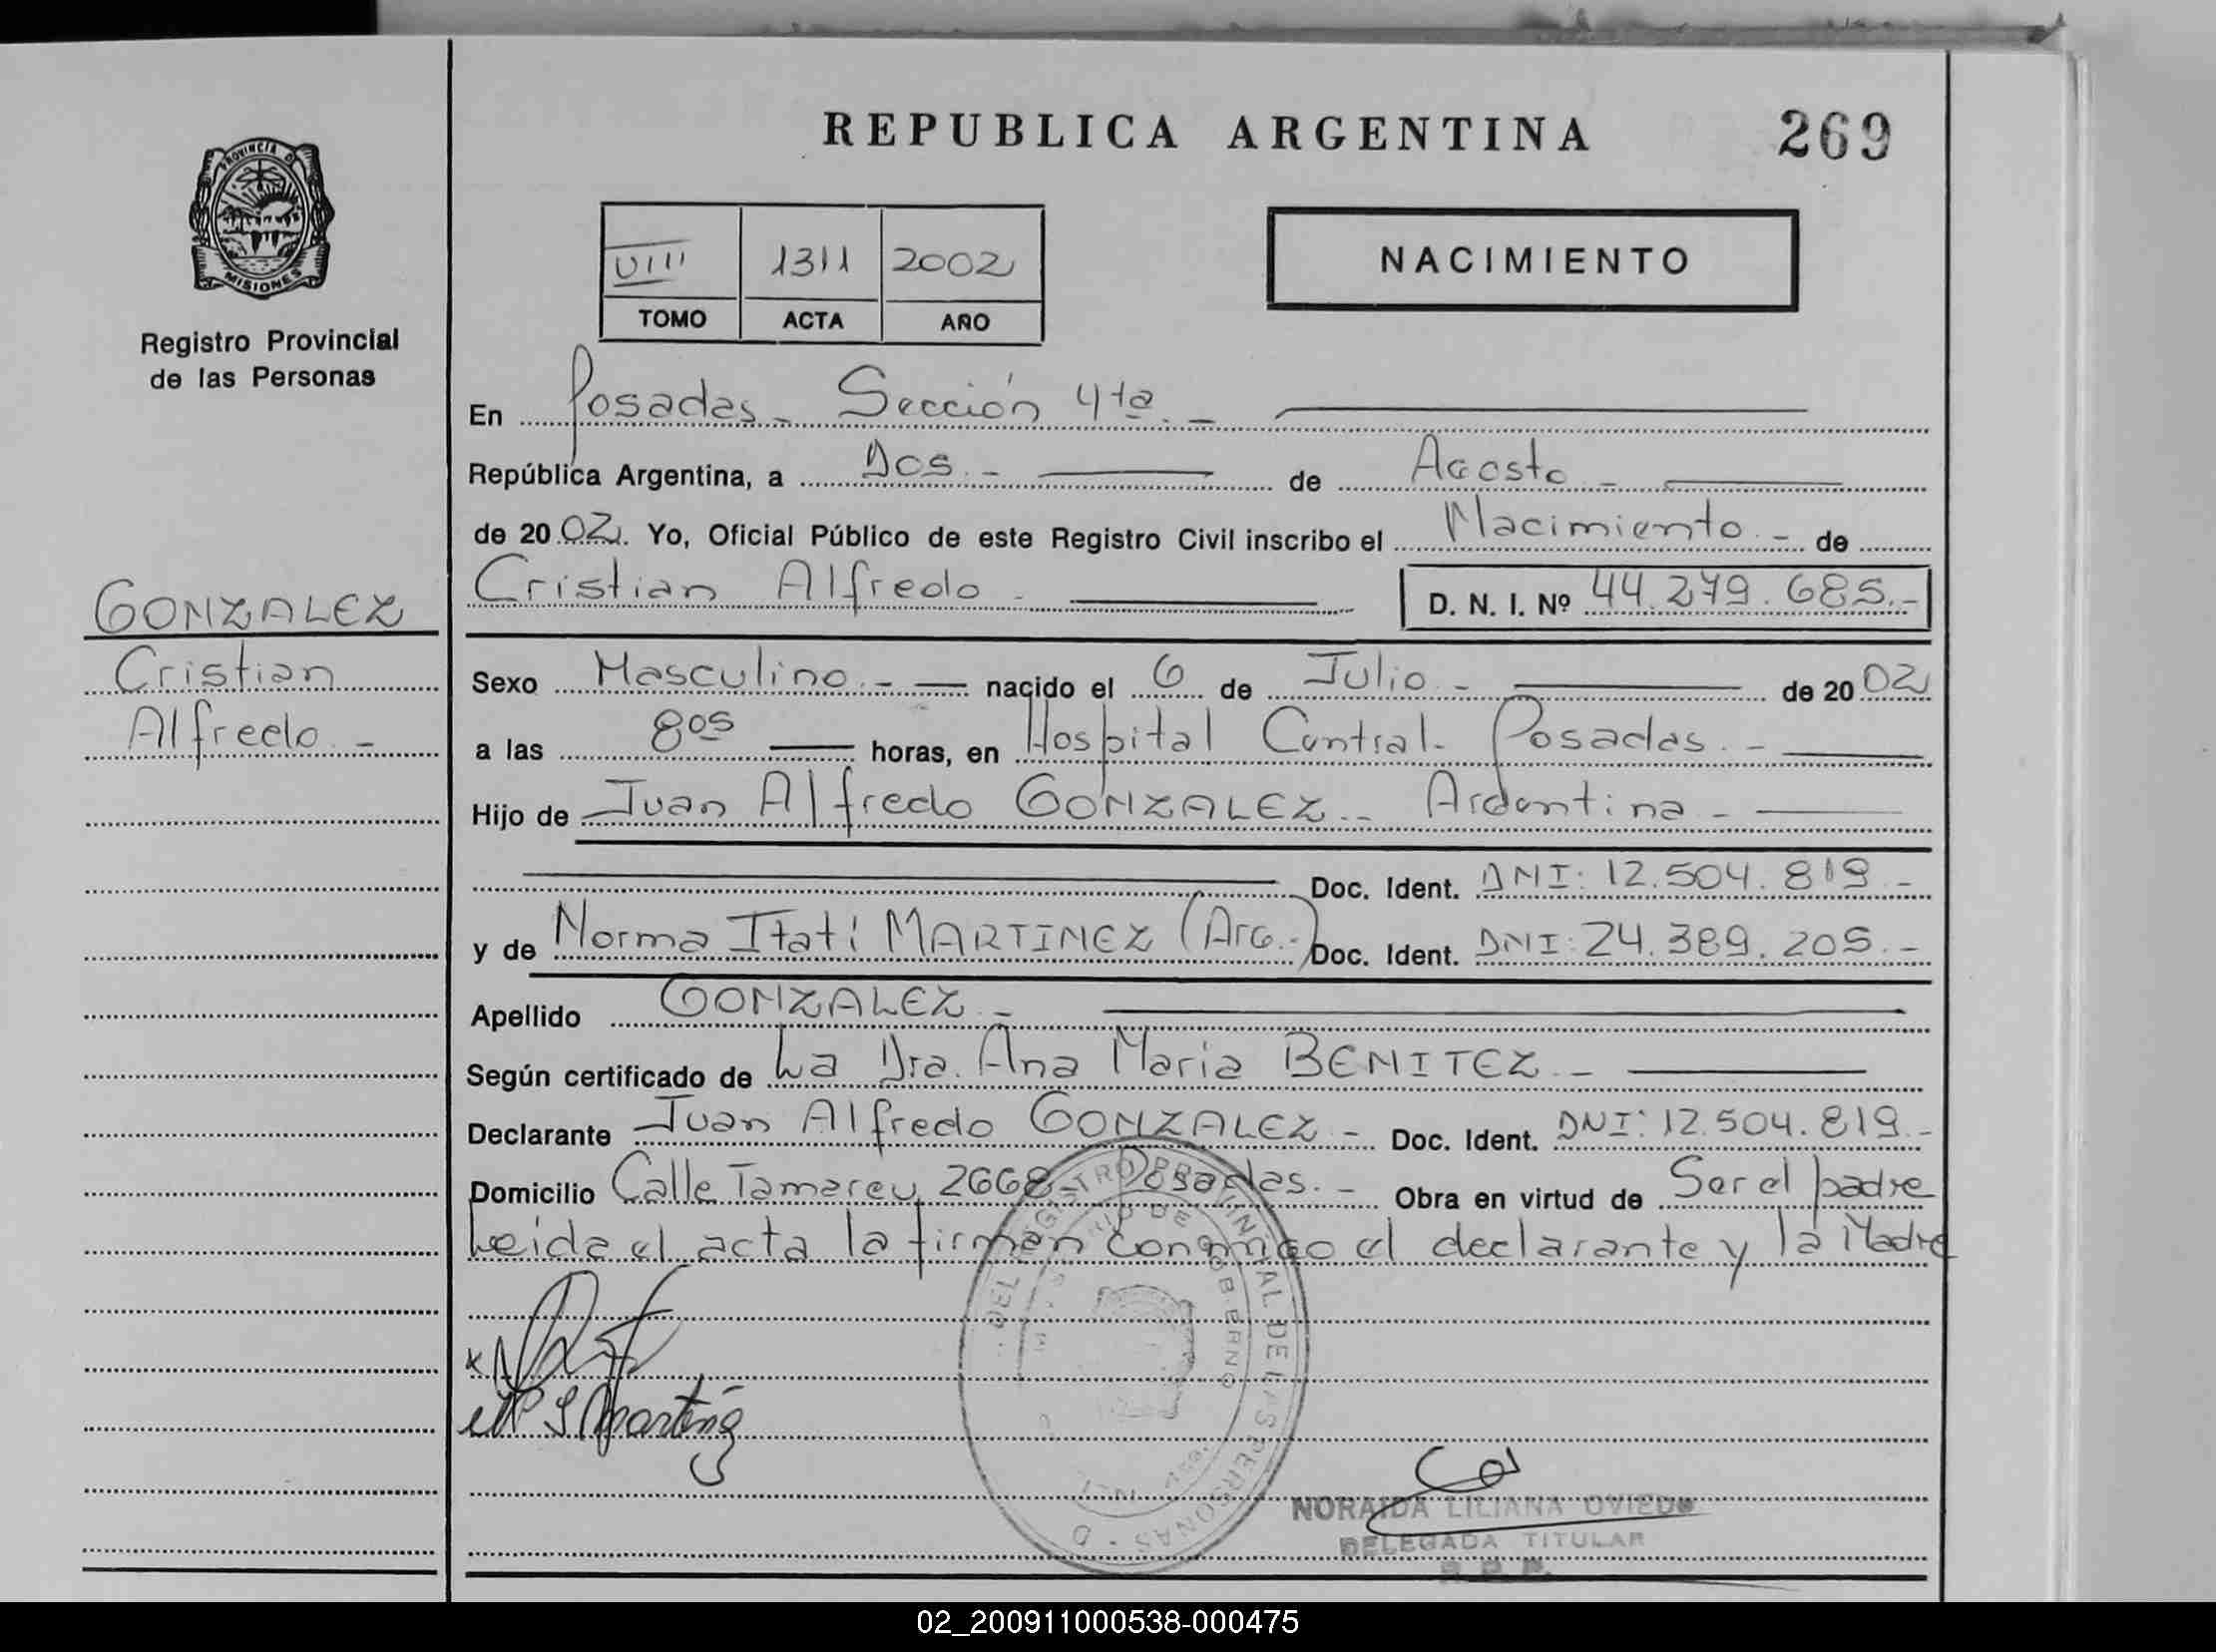 REPUBLICA ARGENTINA 269
PROVINCIA D
MISIONES
Registro Provincial
de las Personas
VIII 1311 2002
TOMO ACTA AÑO
NACIMIENTO
En Posadas - Sección 4ta. -
República Argentina, a Dos. - de Agosto -
de 2002. Yo, Oficial Público de este Registro Civil inscribo el Nacimiento - de
Cristian Alfredo - D. N. I. Nº 44.279.685.-
GONZALEZ
Cristian
Alfredo -
Sexo Masculino. - nacido el 6 de Julio - de 2002
a las 8 05 horas, en Hospital Central - Posadas. -
Hijo de Juan Alfredo GONZALEZ - Argentina -
Doc. Ident. DNI: 12.504.819 -
y de Norma Itatí MARTINEZ (Arg.-) Doc. Ident. DNI: 24.389.205. -
Apellido GONZALEZ -
Según certificado de La Dra. Ana Maria BENITEZ. -
Declarante Juan Alfredo GONZALEZ - Doc. Ident. DNI: 12.504.819 -
Domicilio Calle 2668 - Posadas. - Obra en virtud de Ser el padre
Leida el acta la firman conmigo el declarante y la Madre
DEL REGISTRO PROVINCIAL DE LAS PERSONAS
DE GOBIERNO
Martinez
NORAIDA LILIANA OVIEDO
DELEGADA TITULAR
R. P. P.
02_200911000538-000475